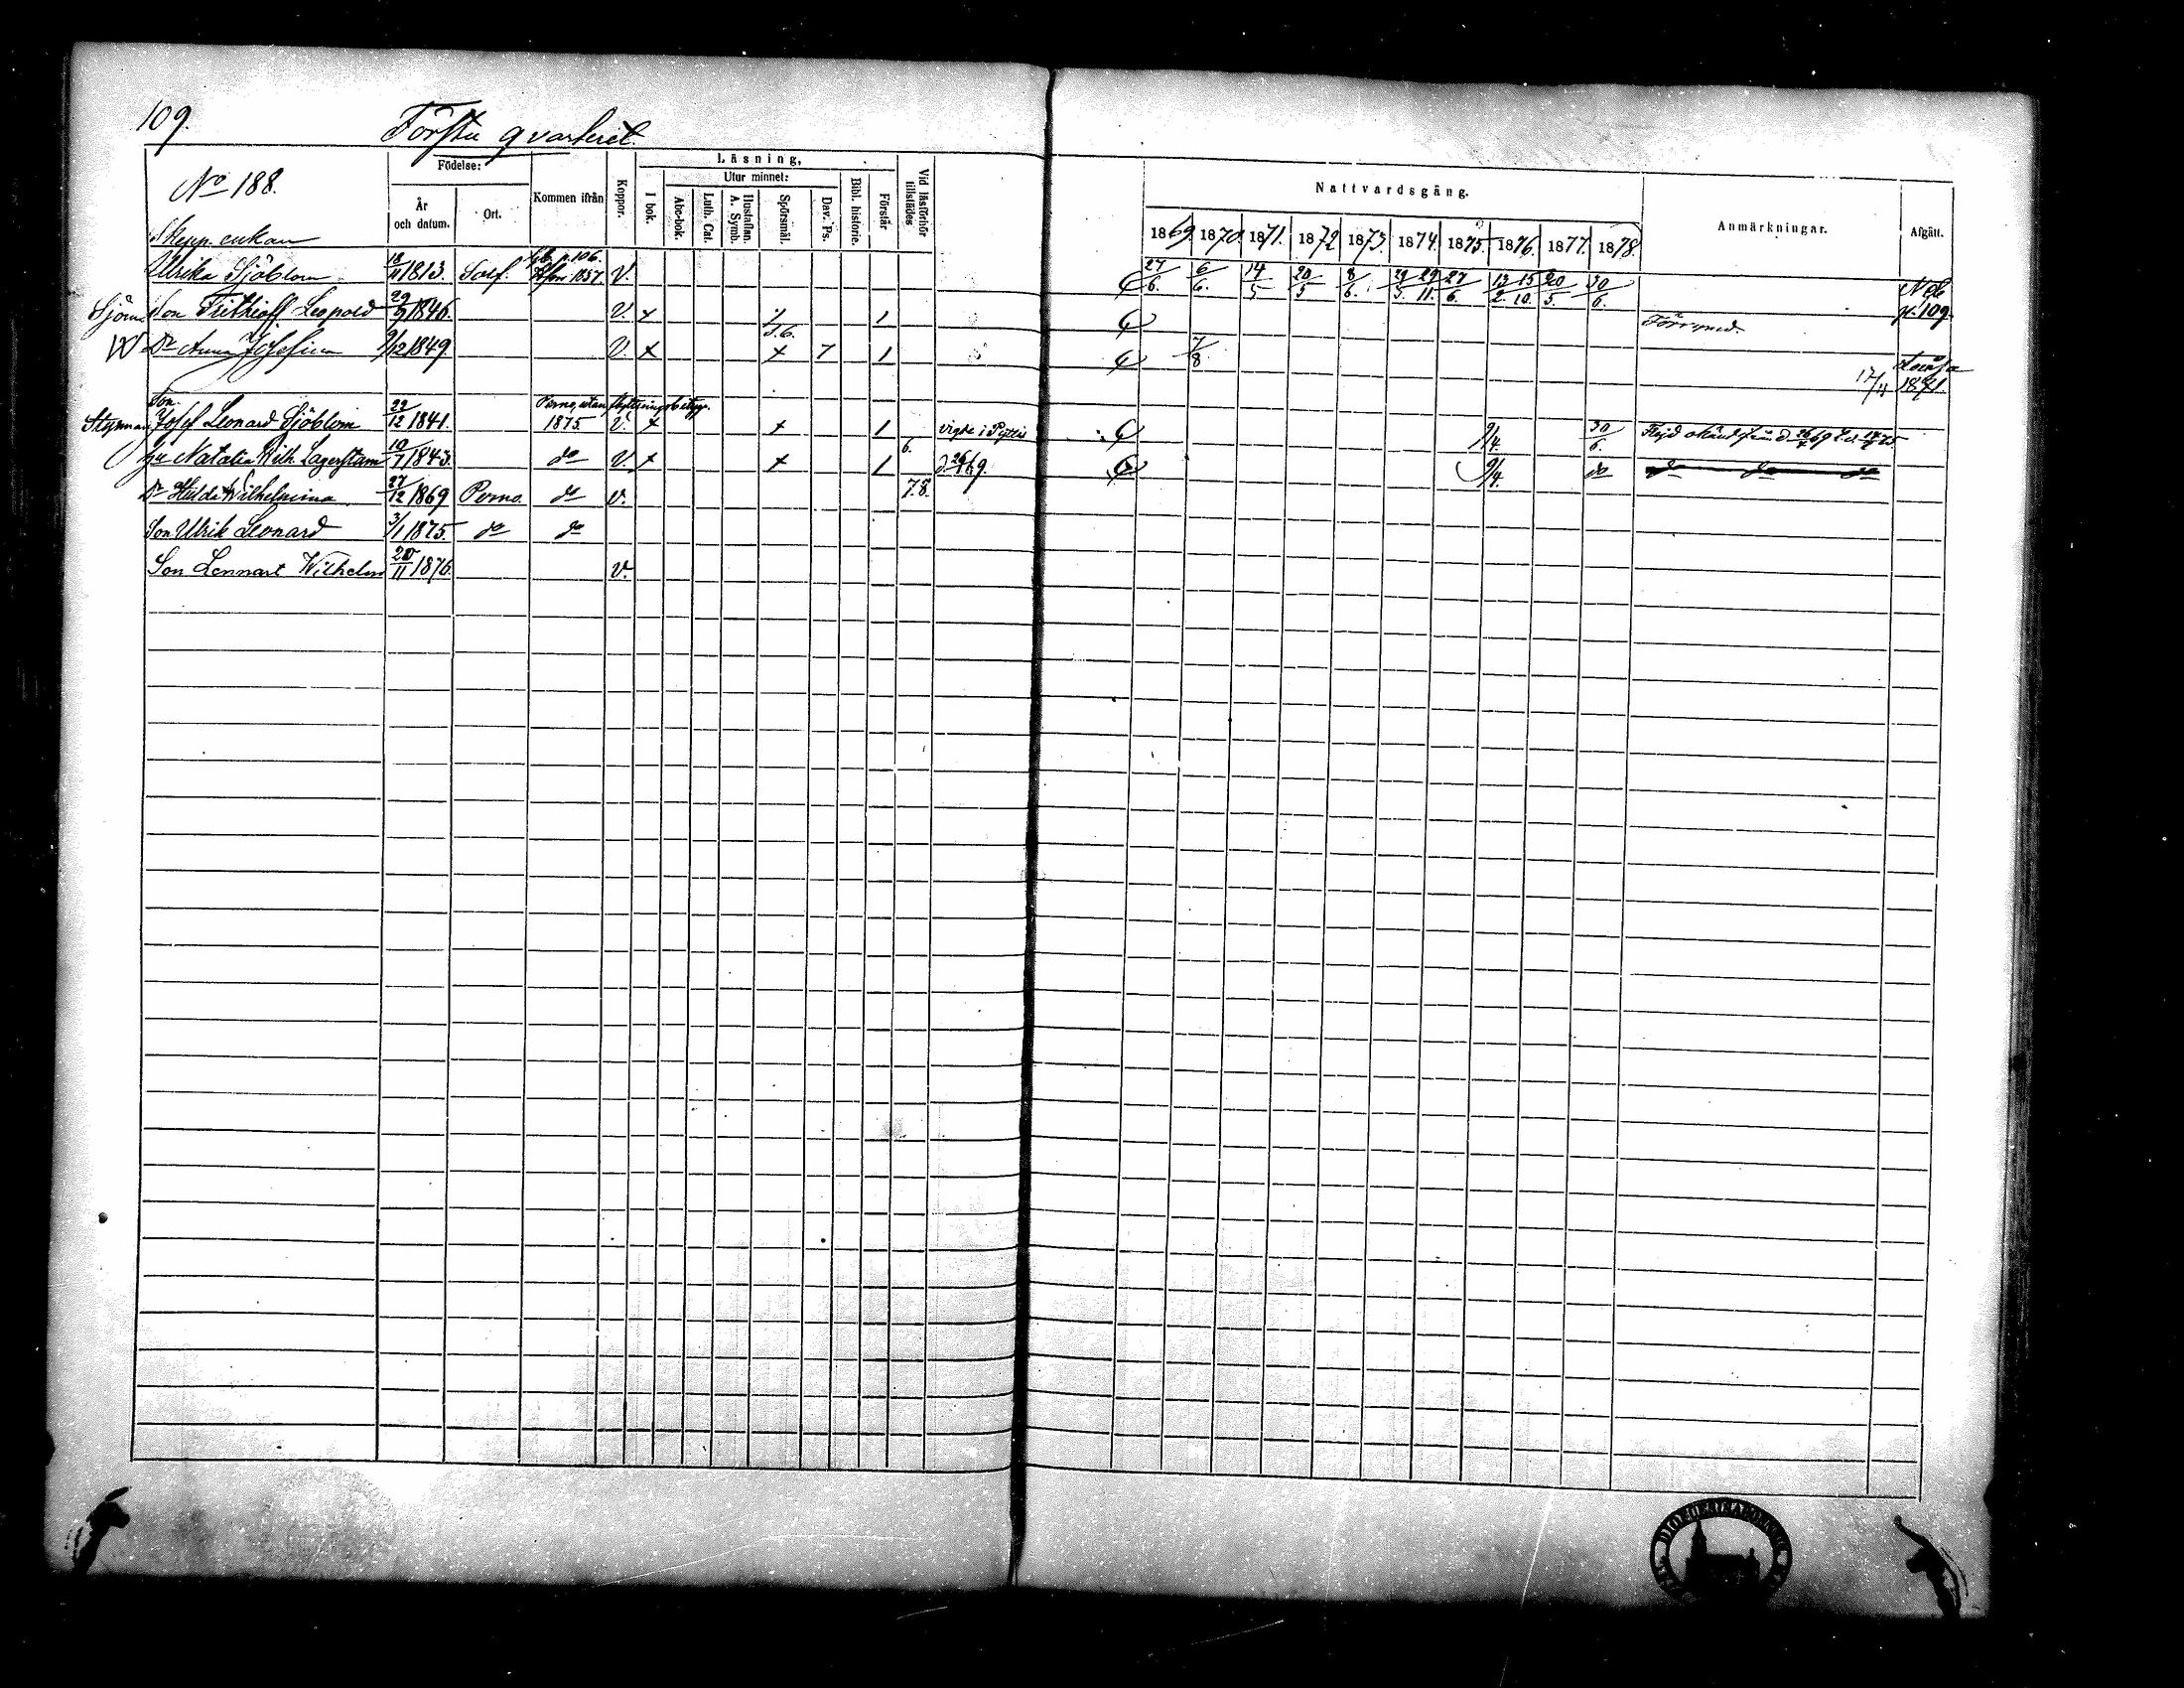 109.
Första qvarteret.
No 188.
Födelse:
År och datum.
Ort.
Kommen ifrån
Koppor.
Läsning,
I bok.
Utur minnet:
Abc-bok.
Luth. Cat.
Hustaflan. A. Symb.
Spörsmål.
Dav. Ps.
Bibl. historie.
Förstår
Vid läsförhör tillstädes
Nattvardsgång.
1869. 1870. 1871. 1872 1873. 1874. 1875 1876. 1877. 1878.
Anmärkningar.
Afgått.
Skepp. enkan
Ulrika Sjöblom 18/11 1813. p. 106. 1857. V. 27/6. 6/6. 14/5 20/5 8/6. 29/11. 27/6. 13/2. 15/10. 20/5. 30/6. p. 109.
Son Frithioff Leopold 29/9 1846. V. x 1
Dr Anna Josefina 9/12 1849. V. x x 7 1 7/8 17/11 1871.
Son
Josef Leonard Sjöblom 22/12 1841. 1875 V. x x 1 vigde i Pyttis 9/4. 30/6.
Natalia Wilh. Lagerstam 10/7 1843. do V. x x 1 6. 9/4. do do do do
Dr Hilda Wilhelmina 27/12 1869 Perno. do v. 7.8.
Son Ulrik Leonard 3/1 1875. do do
Son Lennart Wilhelm 20/11 1876. V.